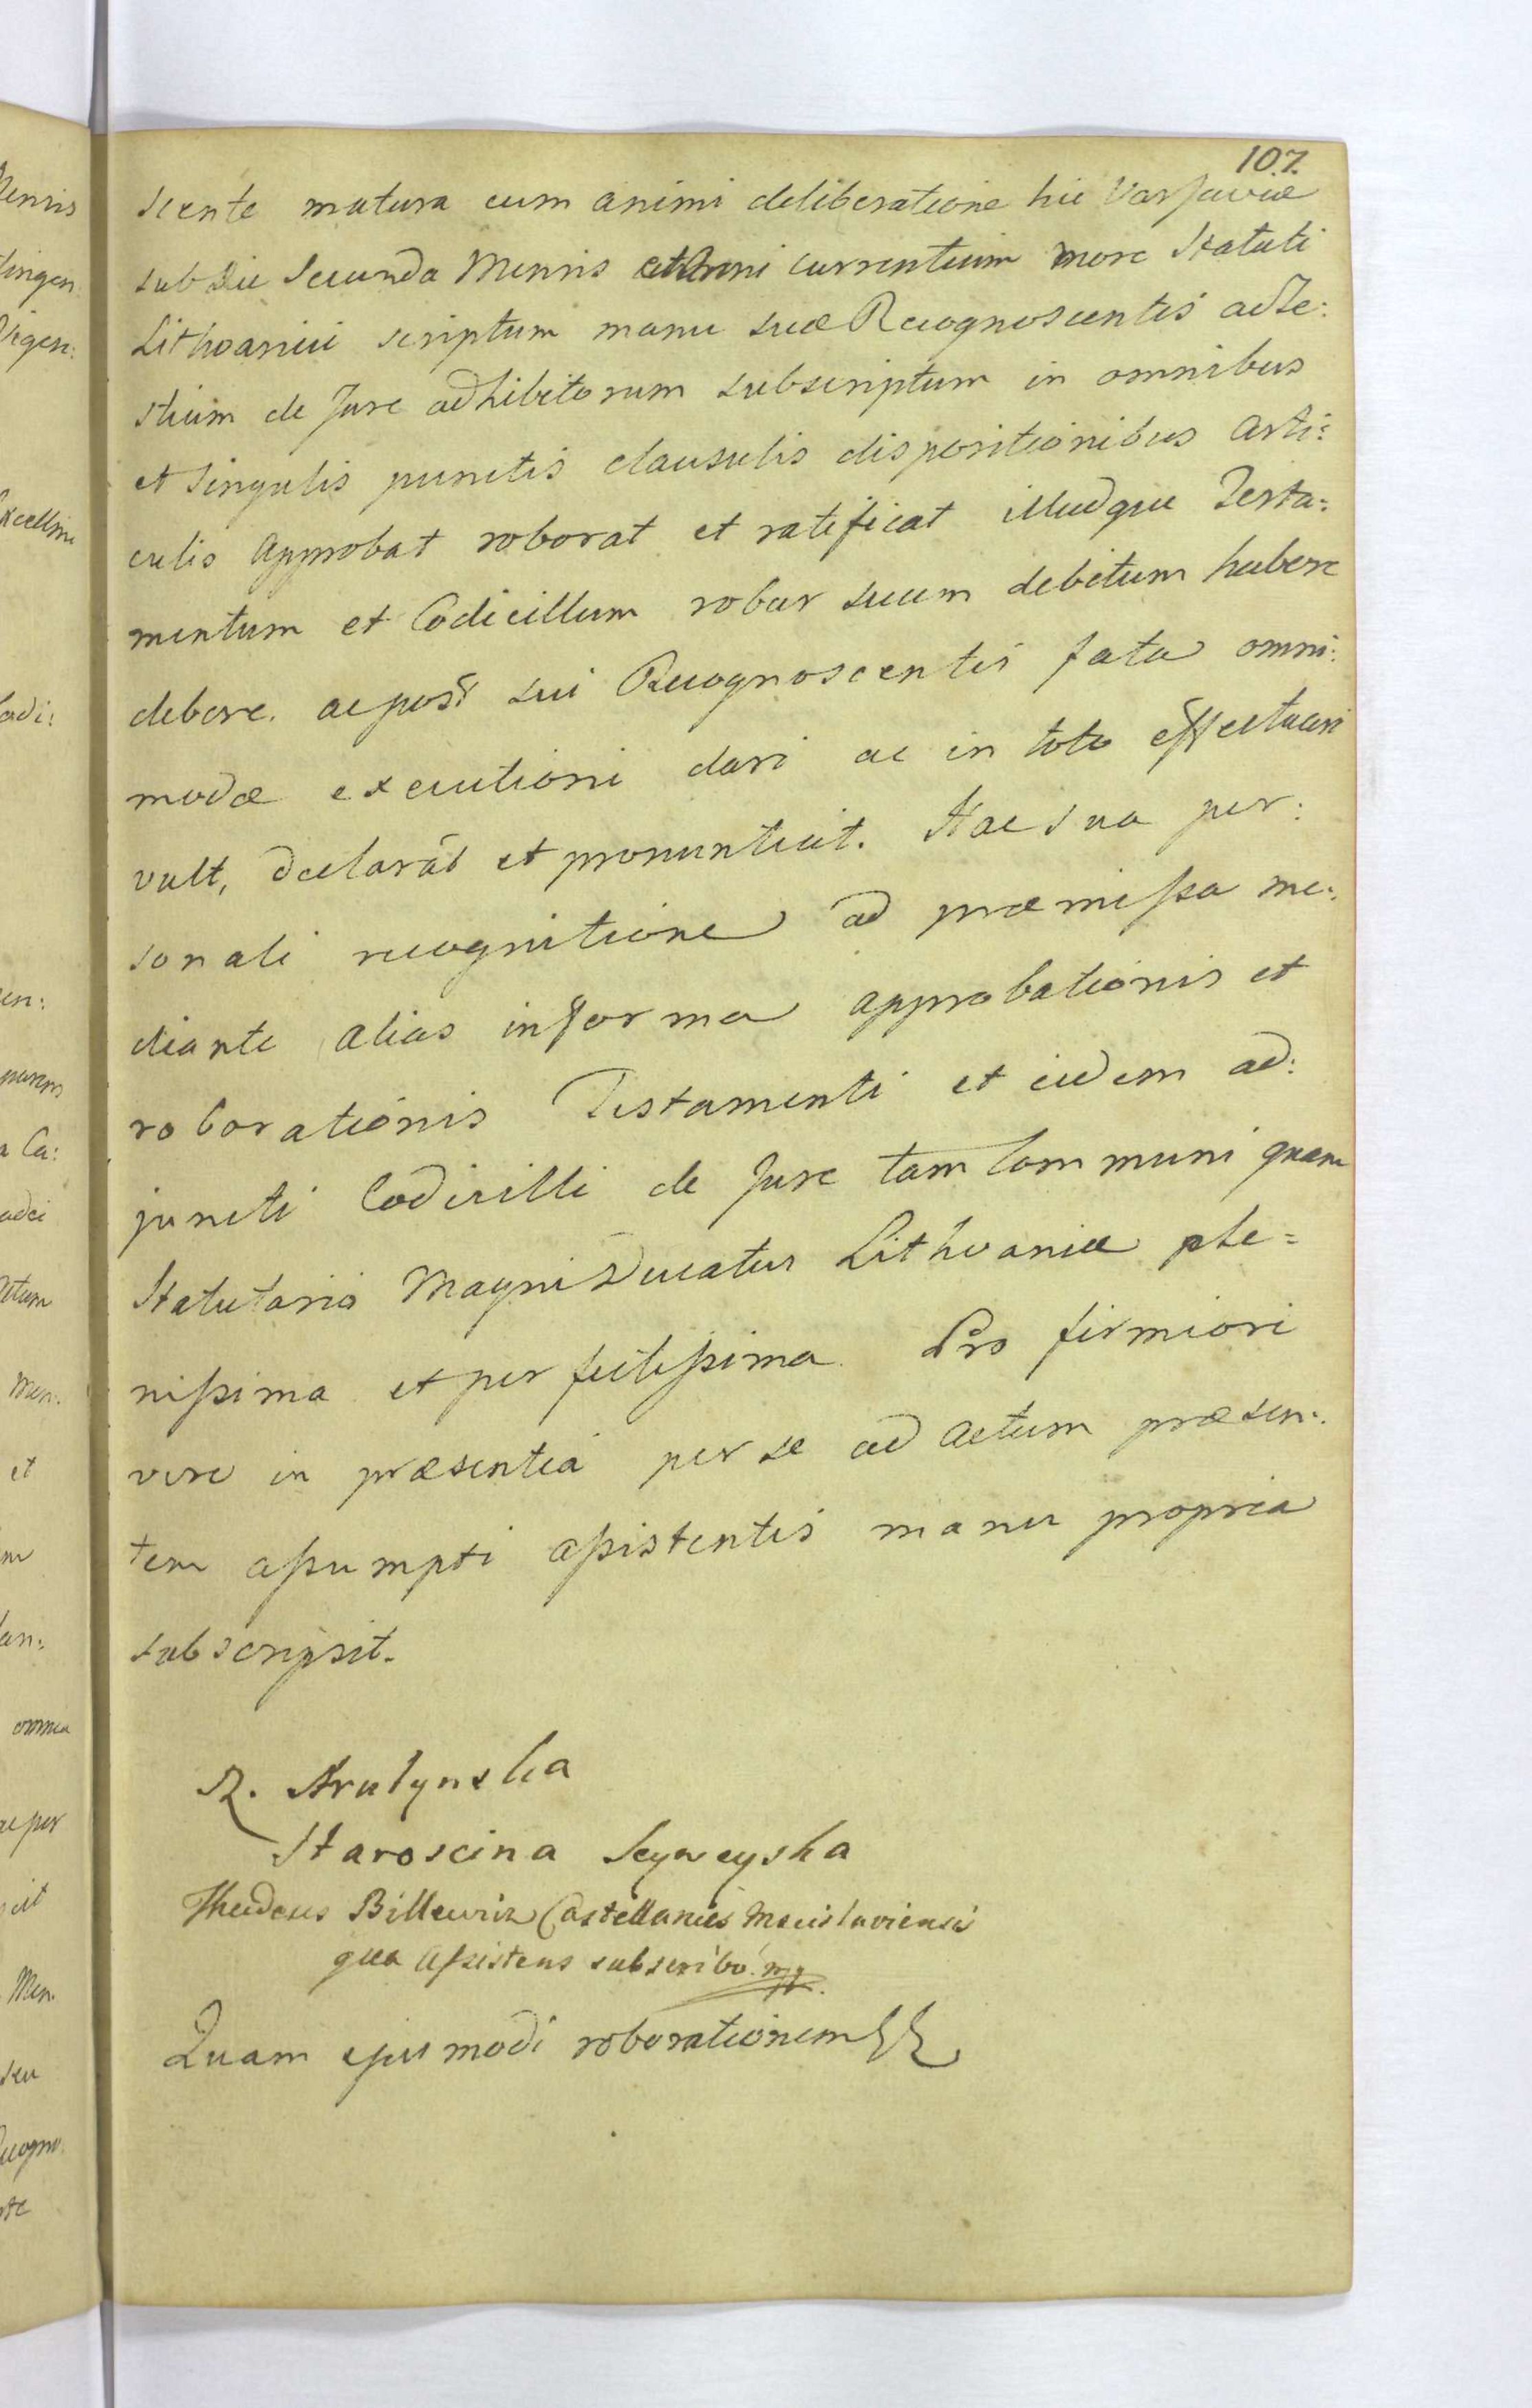 107.
scente matura cum animi deliberatione hic Varsaviæ
sub Die Secunda Mensis et Anni currentium more Statuti
Lithvanici scriptum manu suæ Recognoscentis ac Te:
stium de Jure adhibitorum subscriptum in omnibus
et Singulis punctis clausulis dispositionibus Arti:
culis Approbat roborat et ratificat illudque Testa:
mentum et Codicillum robur suum debitum habere
debere. ac post sui Recognoscentis fata omni:
modæ executioni dari ac in toto effectuari
vult, declarat et pronuntiat. Hac sua per:
sonali recognitione ad præmissa me:
diante alias in forma approbationis et
roborationis Testamenti et eidem ad:
juncti Codicilli de Jure tam Communi quam
Statutario Magni Ducatus Lithvaniæ ple=
nissima et perfectissima. Pro firmiori
vero in præsentia per se ad Actum præsen:
tem assumpti assistentis manu propria
subscripsit.
Staroscina
Billewicz Castellanus Mscislaviensis
qua Assistens subscribo mp.
Quam ejusmodi roborationem
ensis
Vigen:
Codi:
en:
a Ca:
Men:
et
m
omnia
ac per
Men.
seu